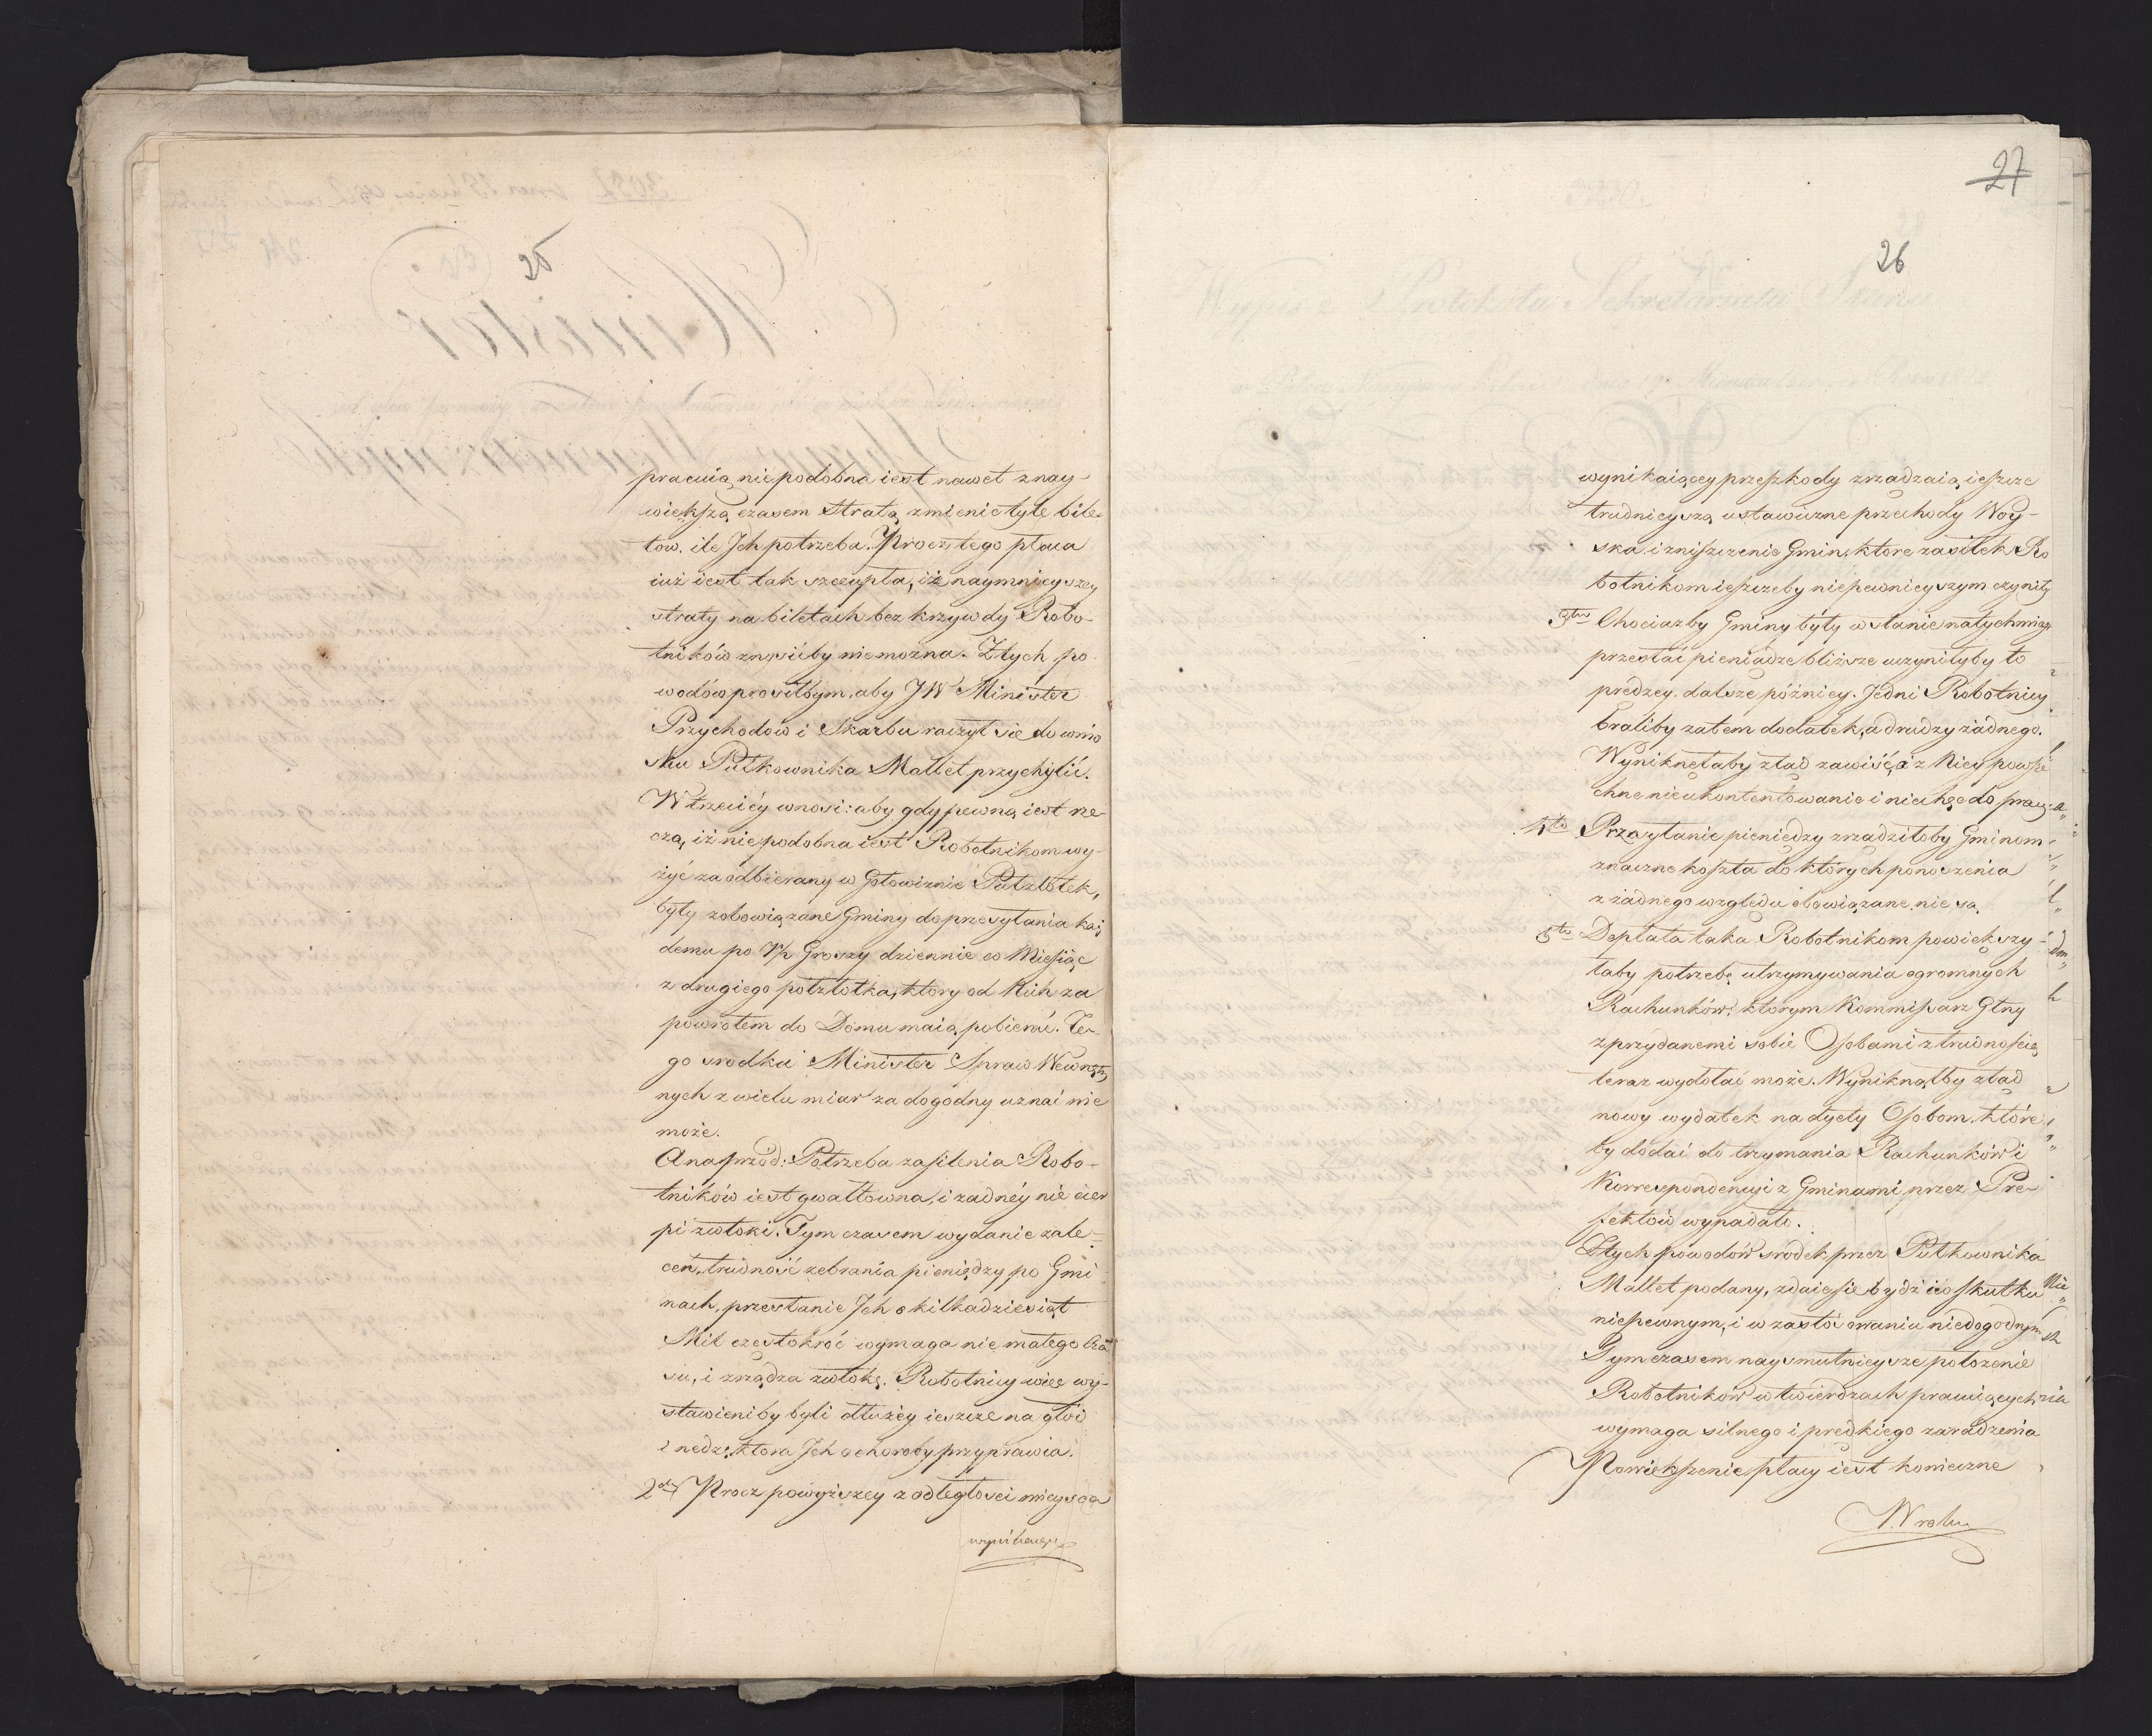 25
pracuią, niepodobna iest nawet z nay-
większą czasem stratą zmienić tyle bile-
tow, ile Jch potrzeba. Procz tego płaca
iuż iest tak szczupła, iż naymnieyszey
straty na biletach bez krzywdy Robo-
tników znosićby niemożna. Z tych po-
wodów prosiłbym, aby JW Minister
Przychodów i Skarbu raczył się do wnio
sku Pułkownika Mallet przychylić.
W trzeciéy wnosi: aby gdy pewną iest rze
czą, iż niepodobna iest Robotnikom wy-
żyć za odbierany w Gotowiznie Pułzłotek,
były zobowiązane Gminy do przesyłania każ
demu po 7½ Groszy dziennie co Miesiąc
z drugiego półzłotka, ktory od Nich za
powrotem do Domu maią pobierać. Te-
go srodka Minister Spraw Wewnętrz
nych z wielu miar za dogodny uznać nie
może.
A naprzód: Potrzeba zasilenia Robo-
tników iest gwałtowna, i żadnéy nie cier
pi zwłoki. Tym czasem wydanie zale-
ceń, trudność zebrania pieniędzy po Gmi
nach, przesłanie Jch o kilkadziesiąt
Mil częstokroć wymaga nie małego Cza
su, i zrządza zwłokę. Robotnicy więc wy-
stawieni by byli dłużéy ieszcze na głód
i nędzę, ktora Jch o choroby przyprawia.
2do Procz powyższey z odległości mieysca
wynikaiącey
27
26
wynikaiącey przeszkody zrządzaią ieszcze
trudnieyszą ustawiczne przechody Woy-
ska, i zniszczenie Gmin, ktore zasiłek Ro
botnikom ieszczeby niepewnieyszym czyniły
3tio Chociażby Gminy były w stanie natychmiast
przesłać pieniądze bliższe uczyniłyby to
prędzey, dalsze późniey. Jedni Robotnicy
braliby zatem dodatek, a drudzy żadnego.
Wyniknęłaby ztąd zawiść, a z Niey powsze
chne nieukontentowanie i niechęć do pracy.
4to Przesyłanie pieniędzy zrządziłoby Gminom
znaczne koszta do których ponoszenia
z żadnego względu obowiązane nie są.
5to Dopłata taka Robotnikom powiększy-
łaby potrzebę utrzymywania ogromnych
Rachunków, ktorym Kommissarz Głny
z przydanemi sobie Osobami z trudnością
teraz wydołać może. Wyniknąłby ztąd
nowy wydatek na dyety Osobom, które
by dodać do trzymania Rachunków i
Korrespondencyi z Gminami przez Pre-
fektów wypadało.
Z tych powodów srodek przez Pułkownika
Mallet podany, zdaie się bydź co do skutku
niepewnym, i w zastósowaniu niedogodnym
Tymczasem naysmutnieysze położenie
Robotników w twierdzach pracuiących
wymaga silnego i prędkiego zaradzenia
Powiększenie płacy iest konieczne